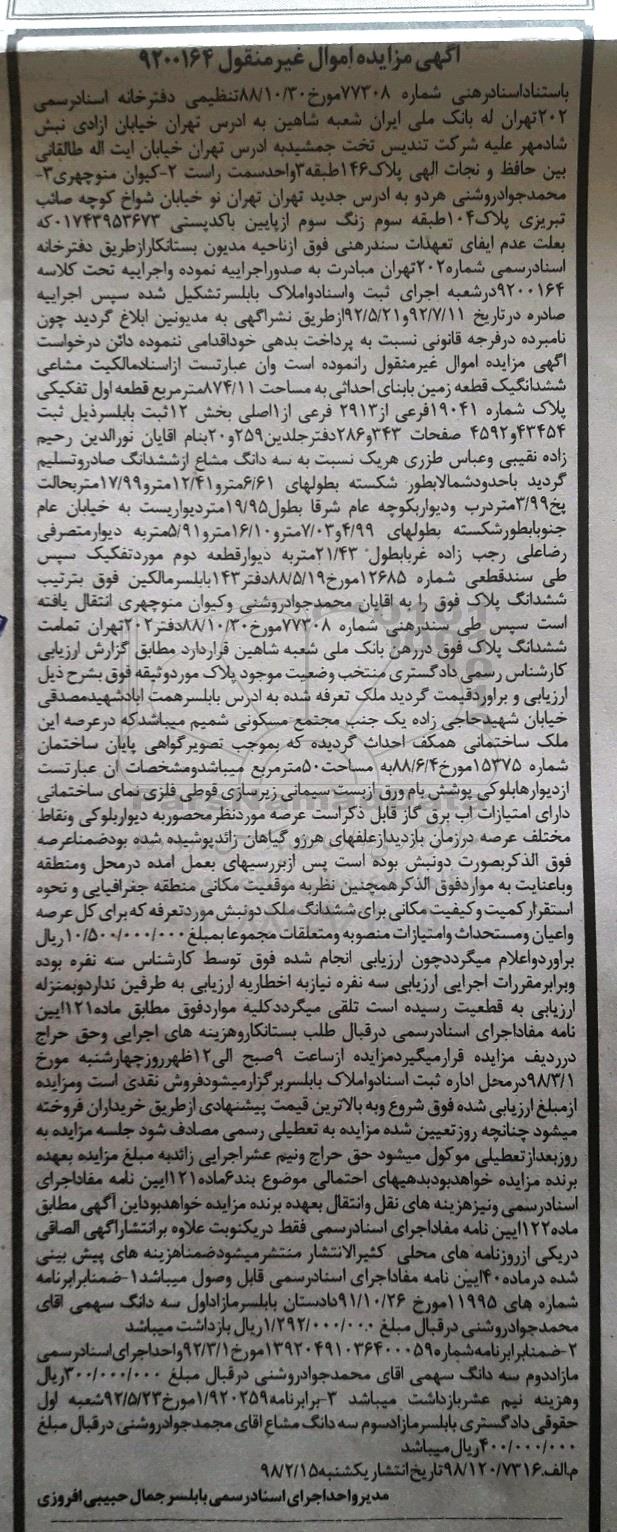 آگهی مزایده اموال غیرمنقول ۹۲۰۰۱۶۴
باستناداسنادرهنی شماره ۷۷۳۰۸مورخ۸۸/۱۰/۳۰تنظیمی دفترخانه اسنادرسمی
۲۰۲تهران له بانک ملی ایران شعبه شاهین به ادرس تهران خیابان ازادی نبش
شادمهر علیه شرکت تندیس تخت جمشیدبه ادرس تهران خیابان ایت اله طالقانی
بین حافظ و نجات الهی پلاک۱۴۶طبقه۳واحدسمت راست ۲-کیوان منوچهری۳-
محمدجوادروشنی هردو به ادرس جدید تهران تهران نو خیابان شواخ کوچه صائب
تبریزی پلاک۱۰۴طبقه سوم زنگ سوم ازپایین باکدپستی ۰۱۷۴۳۹۵۳۶۷۳که
بعلت عدم ایفای تعهدات سندرهنی فوق ازناحیه مدیون بستانکارازطریق دفترخانه
اسنادرسمی شماره۲۰۲تهران مبادرت به صدوراجراییه نموده واجراییه تحت کلاسه
۹۲۰۰۱۶۴درشعبه اجرای ثبت واسنادواملاک بابلسرتشکیل شده سپس اجراییه
صادره درتاریخ ۹۲/۷/۱۱و۹۲/۵/۲۱ازطریق نشراگهی به مدیونین ابلاغ گردید چون
نامبرده درفرجه قانونی نسبت به پرداخت بدهی خوداقدامی ننموده دائن درخواست
اگهی مزایده اموال غیرمنقول رانموده است وان عبارتست ازاسنادمالکیت مشاعی
ششدانگیک قطعه زمین بابنای احداثی به مساحت ۸۷۴/۱۱مترمربع قطعه اول تفکیکی
پلاک شماره ۱۹۰۴۱فرعی از۲۹۱۳ فرعی از۱اصلی بخش ۱۲ثبت بابلسرذیل ثبت
۴۳۴۵۴و۴۵۹۲ صفحات ۳۴۳و۲۸۶دفترجلدین۲۵۹و۲۰بنام اقایان نورالدین رحیم
زاده نقیبی وعباس طزری هریک نسبت به سه دانگ مشاع ازششدانگ صادروتسلیم
گردید باحدودشمالابطور شکسته بطولهای ۶/۶۱مترو۱۲/۴۱مترو۱۷/۹۹متربحالت
پخ۳/۹۹متردرب ودیواربکوچه عام شرقا بطول۱۹/۹۵متردیواریست به خیابان عام
جنوبابطورشکسته بطولهای ۴/۹۹و۷/۰۳مترو۱۶/۱۰مترو۵/۹۱متربه دیوارمتصرفی
رضاعلی رجب زاده غربابطول ۲۱/۴۳متربه دیوارقطعه دوم موردتفکیک سپس
طی سندقطعی شماره ۱۲۶۸۵مورخ۸۸/۵/۱۹دفتر۱۴۳بابلسرمالکین فوق بترتیب
ششدانگ پلاک فوق را به اقایان محمدجوادروشنی وکیوان منوچهری انتقال یافته
است سپس طی سندرهنی شماره ۷۷۳۰۸مورخ۸۸/۱۰/۳۰دفتر۲۰۲تهران تمامت
ششدانگ پلاک فوق دررهن بانک ملی شعبه شاهین قراردارد مطابق گزارش ارزیابی
کارشناس رسمی دادگستری منتخب وضعیت موجود پلاک موردوثیقه فوق بشرح ذیل
ارزیابی و براوردقیمت گردید ملک تعرفه شده به ادرس بابلسرهمت ابادشهیدمصدقی
خیابان شهیدحاجی زاده یک جنب مجتمع مسکونی شمیم میباشدکه درعرصه این
ملک ساختمانی همکف احداث گردیده که بموجب تصویرگواهی پایان ساختمان
شماره ۱۵۳۷۵مورخ۸۸/۶/۴به مساحت۵۰مترمربع میباشدومشخصات ان عبارتست
ازدیوارهابلوکی پوشش بام ورق ازبست سیمانی زیرسازی قوطی فلزی نمای ساختمانی
دارای امتیازات اب برق گاز قابل ذکراست عرصه موردنظرمحصوربه دیواربلوکی ونقاط
مختلف عرصه درزمان بازدیدازعلفهای هرزو گیاهان زائدپوشیده شده بودضمناعرصه
فوق الذکربصورت دونبش بوده است پس ازبررسیهای بعمل امده درمحل ومنطقه
وباعنایت به مواردفوق الذکرهمچنین نظربه موقعیت مکانی منطقه جغرافیایی و نحوه
استقرار کمیت وکیفیت مکانی برای ششدانگ ملک دونبش موردتعرفه که برای کل عرصه
واعیان ومستحداث وامتیازات منصوبه ومتعلقات مجموعا بمبلغ ۱۰/۵۰۰/۰۰۰/۰۰۰ریال
براوردواعلام میگرددچون ارزیابی انجام شده فوق توسط کارشناس سه نفره بوده
وبرابرمقررات اجرایی ارزیابی سه نفره نیازبه اخطاریه ارزیابی به طرفین نداردوبمنزله
ارزیابی به قطعیت رسیده است تلقی میگرددکلیه مواردفوق مطابق ماده۱۲۱ایین
نامه مفاداجرای اسنادرسمی درقبال طلب بستانکاروهزینه های اجرایی وحق حراج
درردیف مزایده قرارمیگیردمزایده ازساعت ۹صبح الی۱۲ظهرروزچهارشنبه مورخ
۹۸/۳/۱درمحل اداره ثبت اسنادواملاک بابلسربرگزارمیشودفروش نقدی است ومزایده
ازمبلغ ارزیابی شده فوق شروع وبه بالاترین قیمت پیشنهادی ازطریق خریداران فروخته
میشود چنانچه روزتعیین شده مزایده به تعطیلی رسمی مصادف شود جلسه مزایده به
روزبعدازتعطیلی موکول میشود حق حراج ونیم عشراجرایی زائدبه مبلغ مزایده بعهده
برنده مزایده خواهدبودبدهیهای احتمالی موضوع بند۶ماده۱۲۱ایین نامه مفاداجرای
اسنادرسمی ونیزهزینه های نقل وانتقال بعهده برنده مزایده خواهدبوداین آگهی مطابق
ماده۱۲۲ایین نامه مفاداجرای اسنادرسمی فقط دریکنوبت علاوه برانتشاراگهی الصاقی
دریکی ازروزنامه های محلی کثیرالانتشار منتشرمیشودضمناهزینه های پیش بینی
شده درماده۴۰ایین نامه مفاداجرای اسنادرسمی قابل وصول میباشد۱-ضمنابرابرنامه
شماره های ۱۱۹۹۵مورخ ۹۱/۱۰/۲۶دادستان بابلسرمازاداول سه دانگ سهمی اقای
محمدجوادروشنی درقبال مبلغ ۱/۲۹۲/۰۰۰/۰۰۰ریال بازداشت میباشد
۲-ضمنابرابرنامه‌شماره۱۳۹۲۰۴۹۱۰۳۶۴۰۰۰۵۹مورخ۹۲/۳/۱واحداجرای اسنادرسمی
مازاددوم سه دانگ سهمی اقای محمدجوادروشنی درقبال مبلغ ۳۰۰/۰۰۰/۰۰۰ریال
وهزینه نیم عشربازداشت میباشد ۳-برابرنامه۱/۹۲۰۲۵۹مورخ۹۲/۵/۲۳شعبه اول
حقوقی دادگستری بابلسرمازادسوم سه دانگ مشاع اقای محمدجوادروشنی درقبال مبلغ
۴۰۰/۰۰۰/۰۰۰ریال میباشد
م.الف۹۸/۱۲۰/۷۳۱۶تاریخ انتشار یکشنبه۹۸/۲/۱۵
مدیرواحداجرای اسنادرسمی بابلسرجمال حبیبی افروزی